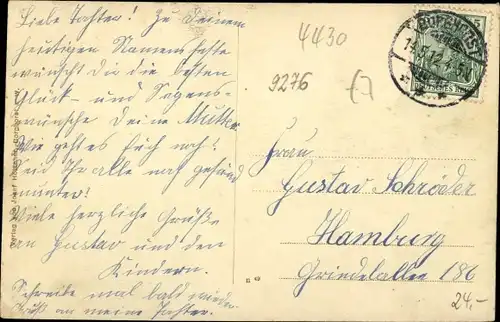 Liebe Tochter! Zu Deinem
heutigen Namensfeste
wünscht dir die besten
Glück- und Segens-
wünsche Deine Mutter
Wie geht es Euch noch?
Seid Ihr alle noch gesund
munter!
Viele herzliche Grüße
an Gustav und den
Kindern.
Schreibe mal bald wieder
Gruß an meine Tochter.
4430
9276
Frau
Gustav Schröder
Hamburg
Grindelallee 186
24,-